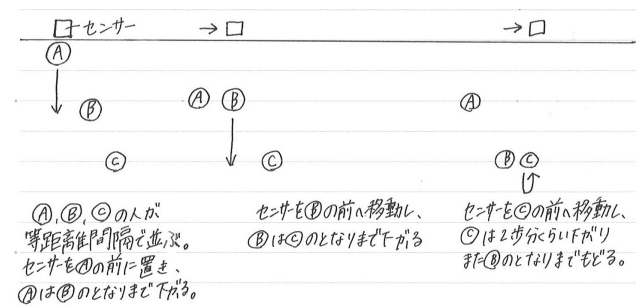 センサー
→ →
Ⓐ
Ⓑ
Ⓒ
Ⓐ Ⓑ
Ⓒ
Ⓐ
Ⓑ Ⓒ
Ⓐ,Ⓑ,Ⓒの人が
等距離間隔で並ぶ。
センサーをⒶの前に置き、
ⒶはⒷのとなりまで下がる。
センサーをⒷの前へ移動し、
ⒷはⒸのとなりまで下がる
センサーをⒸの前へ移動し、
Ⓒは2歩分くらい下がり
またⒷのとなりまでもどる。